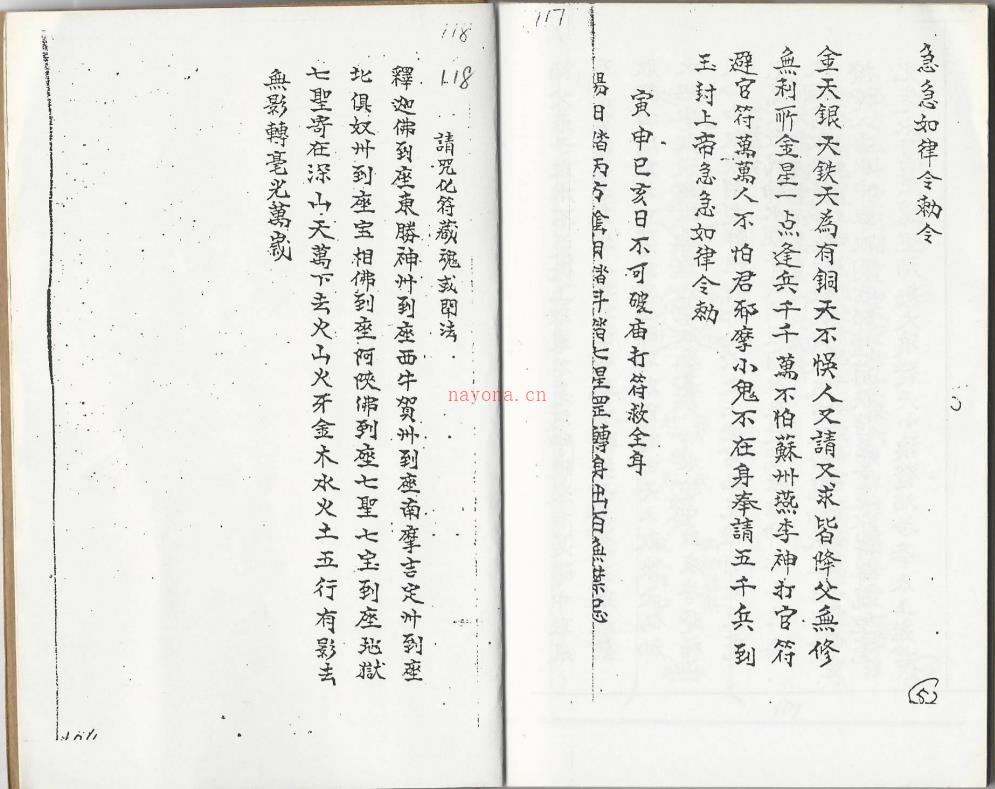 117
急急如律令勅令
金天銀天鉄天為有銅天不悞人又請又求皆降父無修
無利所金星一点逢兵千千萬不怕蘇州燕李神打官符
避官符萬萬人不怕君邪摩小鬼不在身奉請五千兵到
玉封上帝急急如律令勅
寅申巳亥日不可破庙打符救全身
陽日踏丙方陰日踏斗踏七星罡轉身出百無禁忌
5
118
118
請咒化符藏魂或閉法
釋迦佛到座東勝神州到座西牛賀州到座南摩吉定州到座
北俱奴州到座宝相佛到座阿佛到座七聖七宝到座地獄
七聖寄在深山天萬下去火山火牙金木水火土五行有影去
無影轉毫光萬歲
nayona.cn